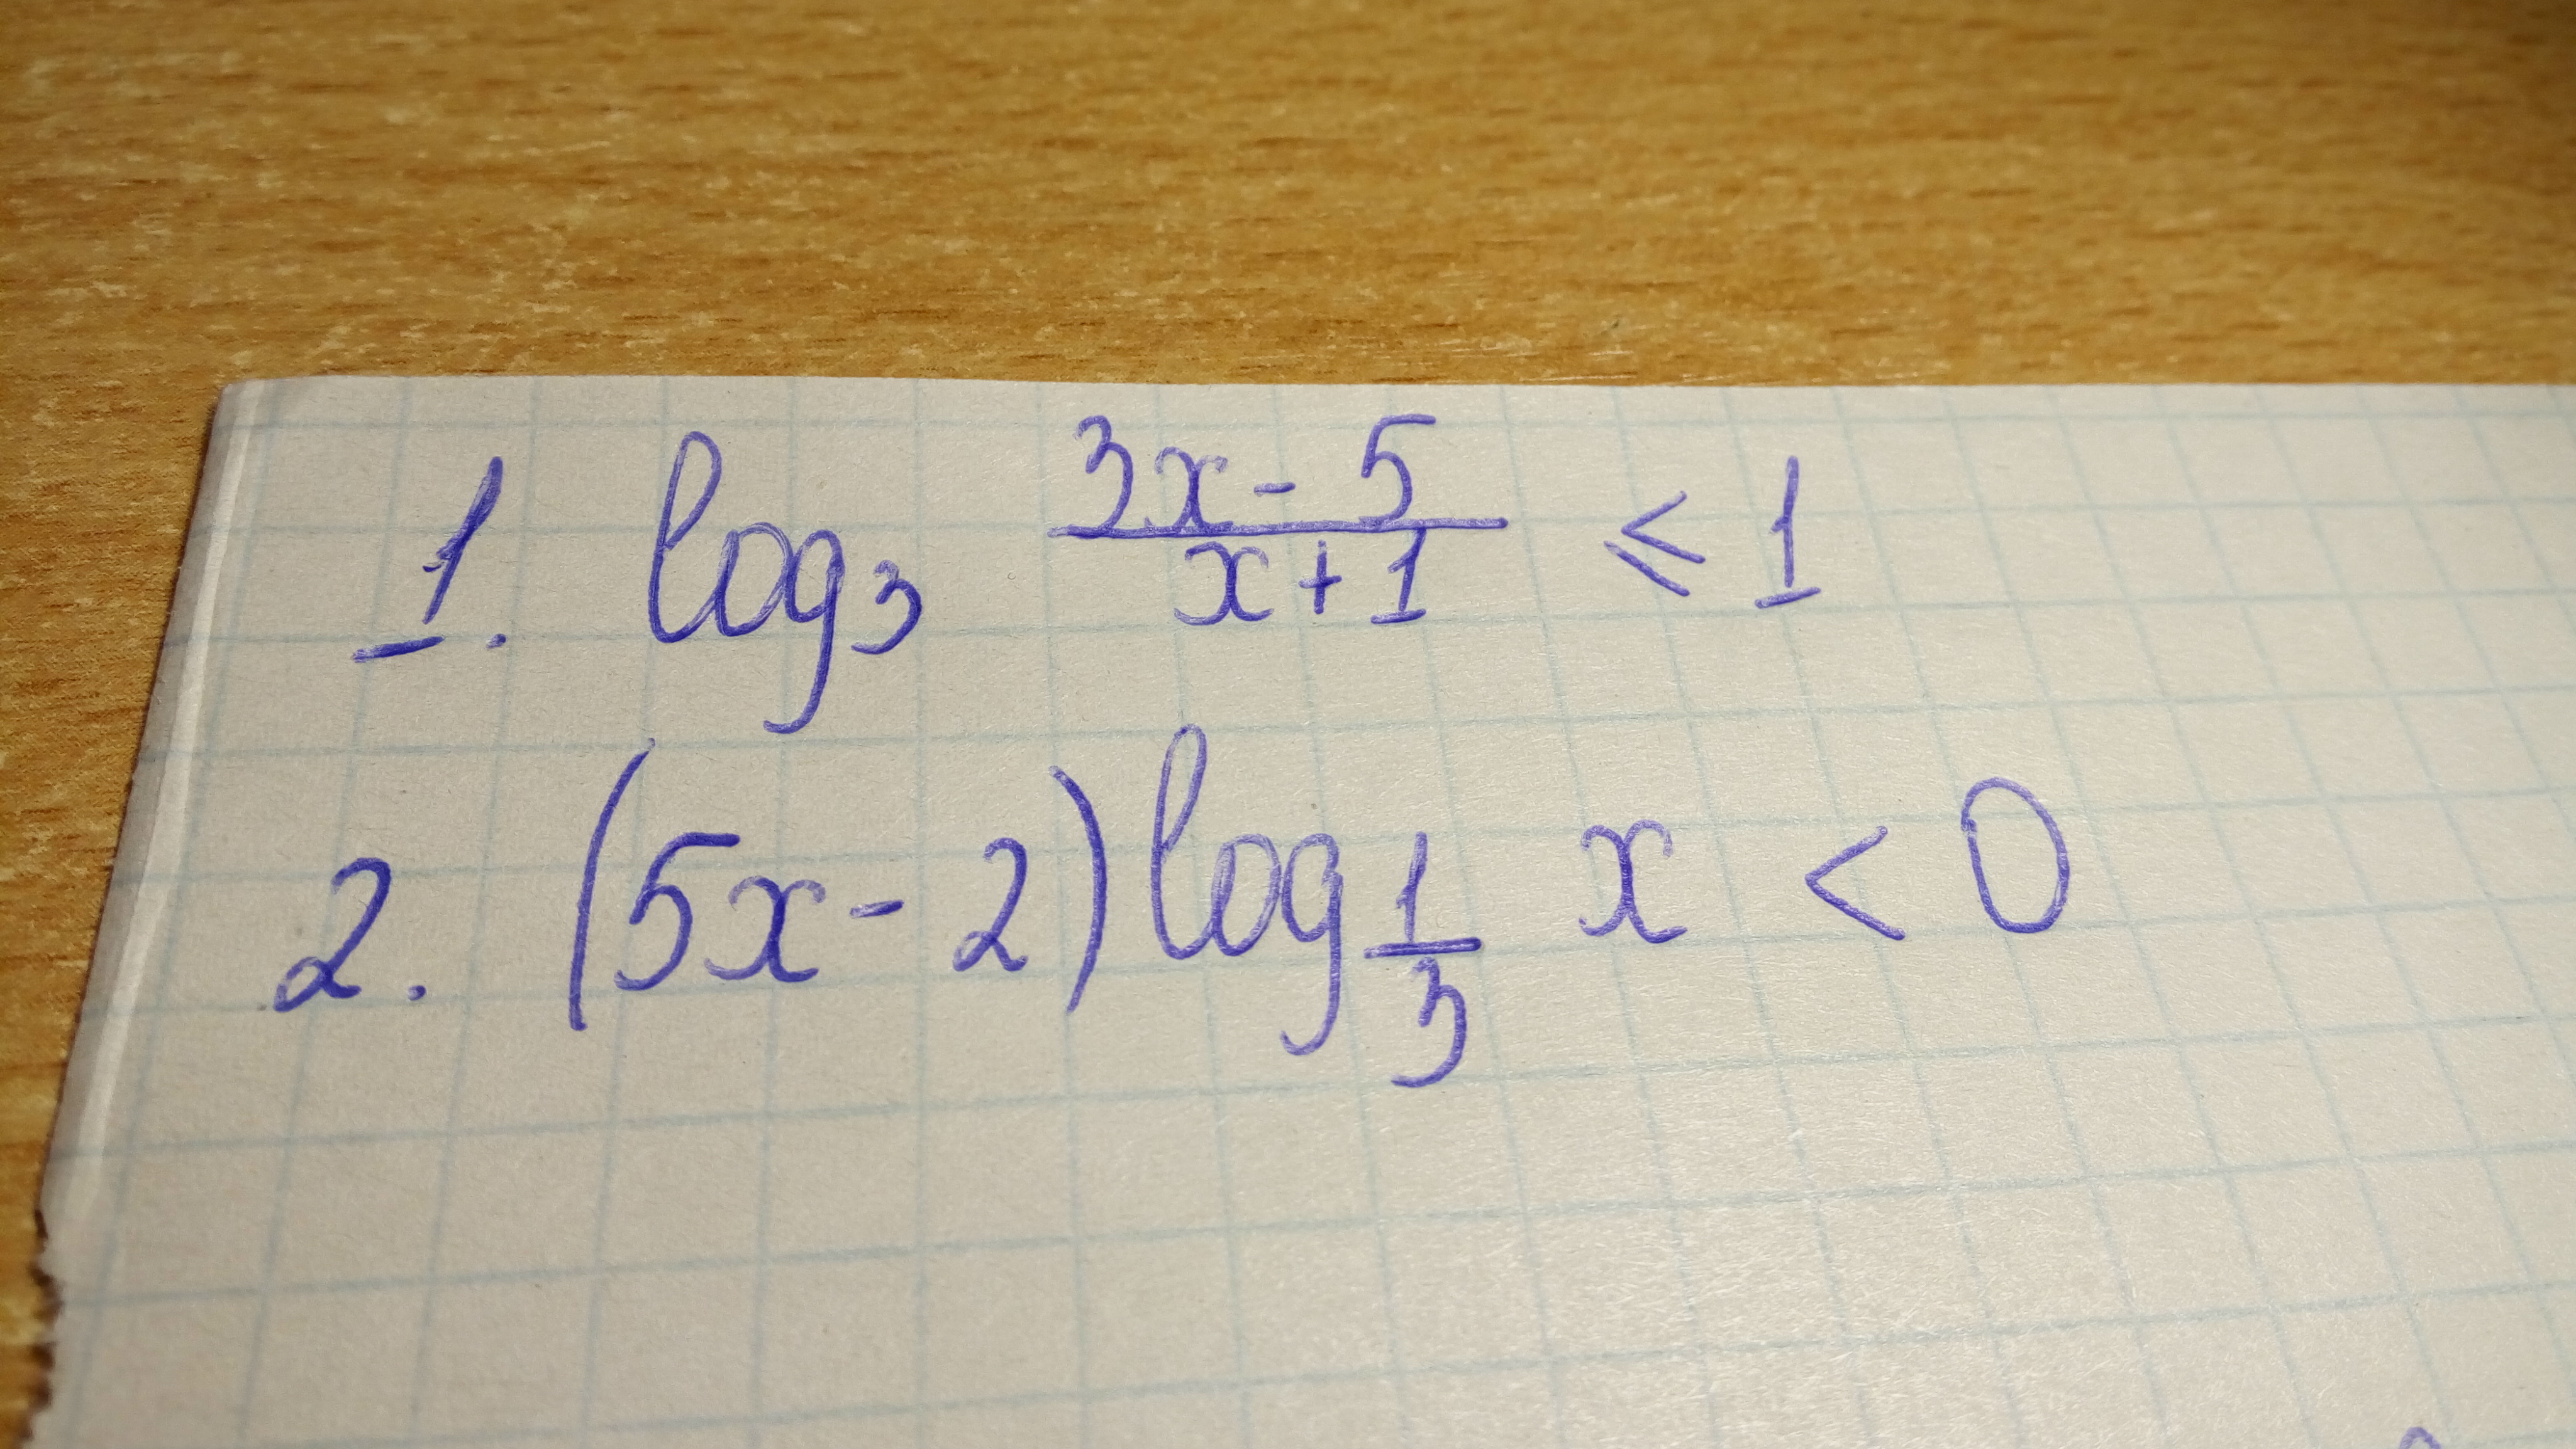 1. log₃ (3x-5)/(x+1) ≤ 1
2. (5x-2) log_(1/3) x < 0